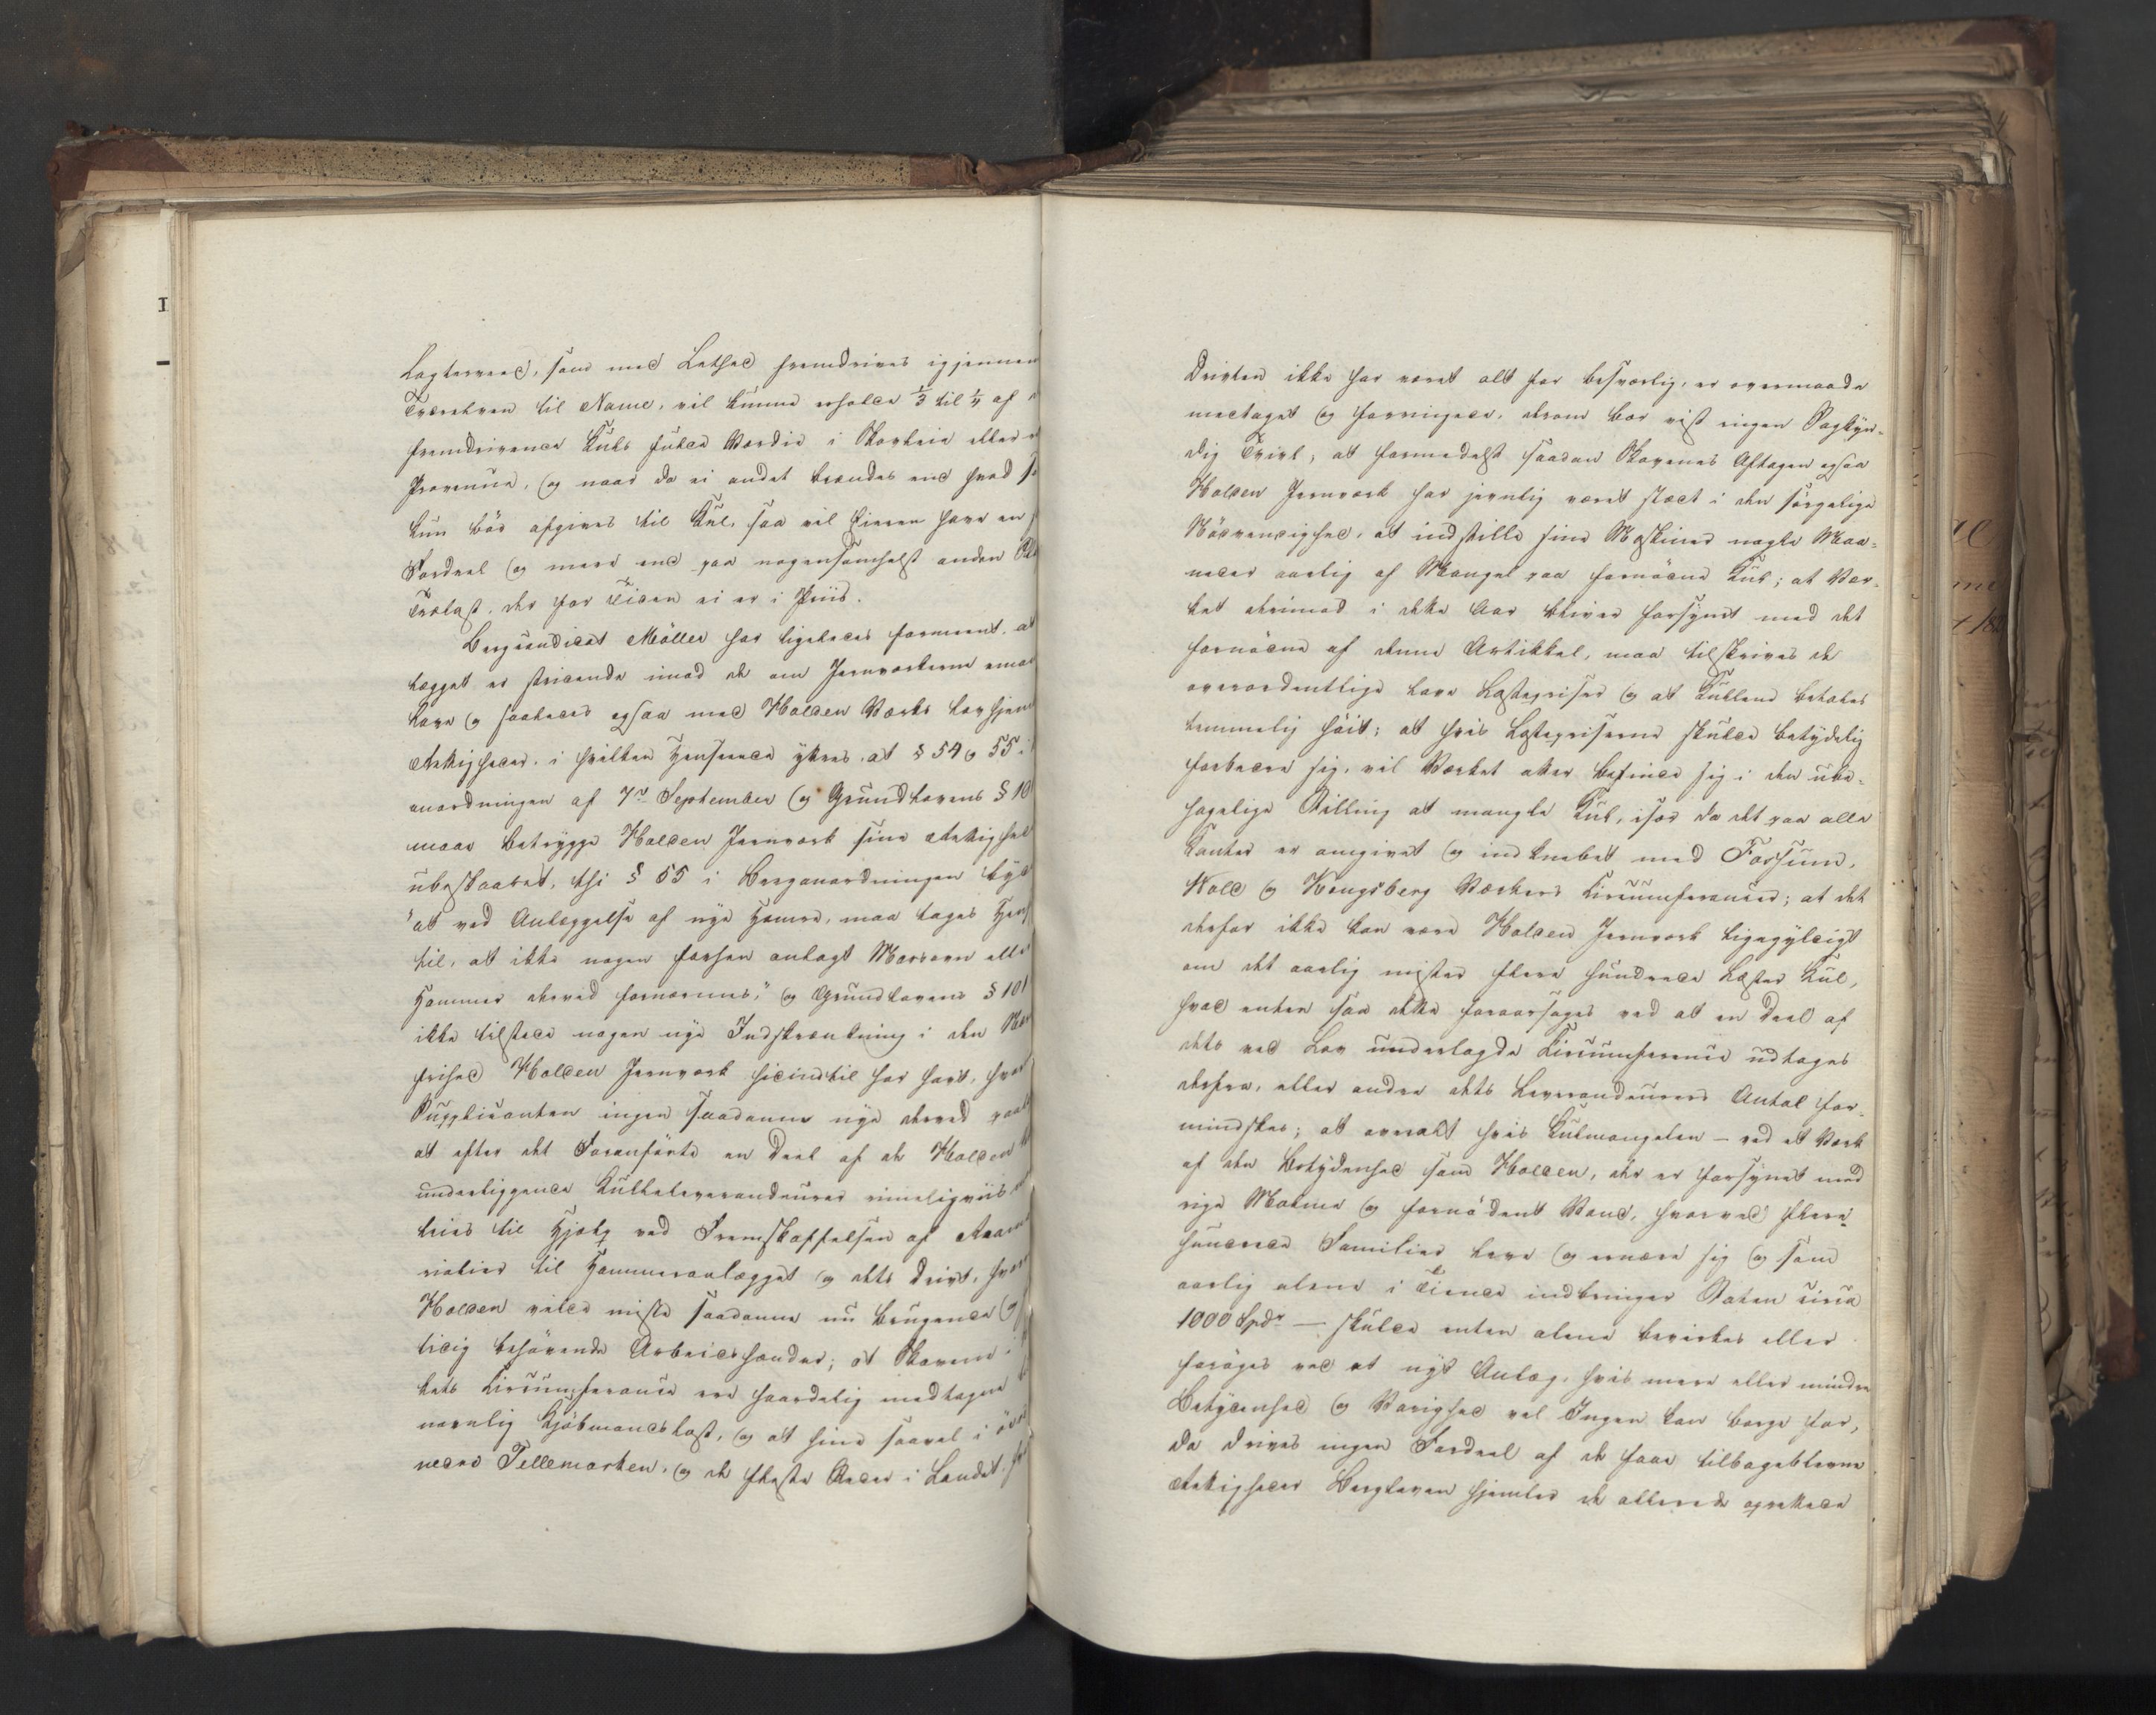 I
-
Lagterveed, som med Lethed fremdrives igjennem
Tværelven til Name, vil kunne erholde 1/3 til 1/4 af
fremdrivende Kuls fulde Værdie i Skovleie eller
Provenue, og naar da ei andet brændes end hvad
kun bör afgives til Kul, saa vil Eieren have en
Fordeel og meer end paa nogensomhelst anden
Trælast, der for Tiden ei er i Priis.
Bergcandidat Möller har ligeledes formeent, at
lægget er stridende imod de om Jernværkerne
Love og saaledes ogsaa med Holden Værks lovhjem
Rettigheder, i hvilken Henseende ytres, at § 54 og 55 i
anordningen af 7de September og Grundlovens § 10
maae betrygge Holden Jernværk sine Rettighed
ubeskaaret, thi § 55 i Berganordningen byd
"at ved Anlæggelse af nye Hamre, maa tages Hens
til, at ikke nogen forhen anlagt Masovn elle
Hammer derved fornærmes," og Grundlovens § 101
ikke tilstede nogen nye Indskrænkning i den Nær
frihed Holden Jernværk hidindtil har havt, hvor
Supplicanten ingen saadanne nye derved
at efter det Foranförte en Deel af de Holden
underliggende Kulleleverandeurer rimeligviis
til Hjelp ved Fremskaffelsen af
rialier til Hammeranlægget og dets Drivt, hvor
Holden vilde miste saadanne nu brugende og
tidig behövende Arbeidshænder; at Skovene i
kets Circumference ere haardelig medtagne
navnlig Kjöbmandslast, og at hine saavel i
nedre Tellemarken, og de fleste Steder i Landet
Drivten ikke har været alt for besværlig, er overmaade
medtaget og forringede, derom bær vist ingen Sagkyn-
dig Tvivl; at formedelst saadan Skovenes Aftagen ogsaa
Holden Jernværk har jevnlig været stædt i den sörgelige
Nödvendighed, at indstille sine Maskiner nogle Maa-
neder aarlig af Mangel paa fornödne Kul; at Vær-
ket derimod i dette Aar bliver forsynet med det
fornödne af denne Artikkel, maa tilskrives de
overordentlige lave Lastepriser og at Kullene betales
temmelig höit; at hvis Lastepriserne skulde betydelig
forbedre sig, vil Værket atter befinde sig i den ube-
hagelige Stilling at mangle Kul, især da det paa alle
Kanter er omgivet og indknebet med Fossum,
Wold og Kongsberg Værkers Circumferencer; at det
derfor ikke kan være Holden Jernværk ligegyldigt
om det aarlig mister flere hundrede Læster Kul,
hvad enten saa dette foraarsages ved at en Deel af
dets ved Lov underlagde Circumference udtages
derfra, eller andre dets Leverandeurers Antal for-
mindskes; at overalt hvis Kulmangelen - ved et Værk
af den Betydenhed som Holden, der er forsynet med
rige Malme og fornödent Vand, hvorved flere
hundrede Familier leve og ernære sig og som
aarlig alene i Tiende indbringer Staten circa
1000 Spdr - skulde enten alene bevirkes eller
foröges ved et nyt Anlæg, hvis mere eller mindre
Betydenhed og Varighed vel Ingen kan borge for,
da drives ingen Fordeel af de faae tilbageblevne
Rettigheder Bergloven hjemler de allerede oprettede